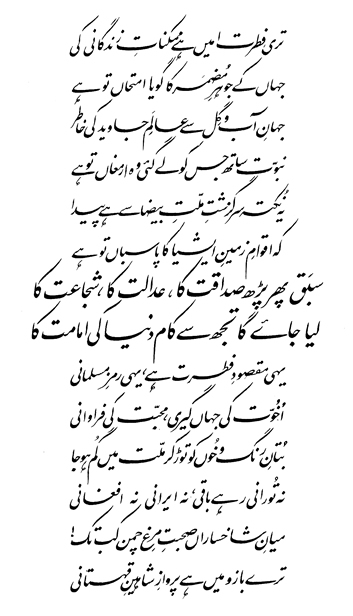 تری فطرت امیں ہے ممکناتِ زندگانی کی
جہاں کے جوہرِ مضمر کا گویا امتحاں تو ہے
جہانِ آب و گِل سے عالَمِ جاوید کی خاطر
نبوّت ساتھ جس کو لے گئی وہ ارمغاں تو ہے
یہ نکتہ سرگزشتِ ملّتِ بیضا سے ہے پیدا
کہ اقوامِ زمینِ ایشیا کا پاسباں تو ہے
سبَق پھر پڑھ صداقت کا، عدالت کا، شجاعت کا
لیا جائے گا تجھ سے کام دنیا کی امامت کا
یہی مقصودِ فطرت ہے، یہی رمزِ مسلمانی
اُخُوّت کی جہاںگیری، محبّت کی فراوانی
بُتانِ رنگ و خُوں کو توڑ کر ملّت میں گُم ہو جا
نہ تُورانی رہے باقی، نہ ایرانی نہ افغانی
میانِ شاخساراں صحبتِ مرغِ چمن کب تک!
ترے بازو میں ہے پروازِ شاہینِ قہستانی